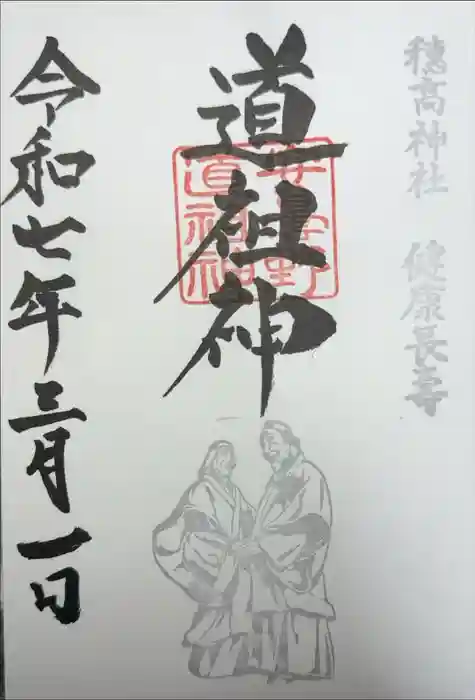 穂高神社　健康長寿
道祖神
安曇野
道祖神
令和七年三月一日